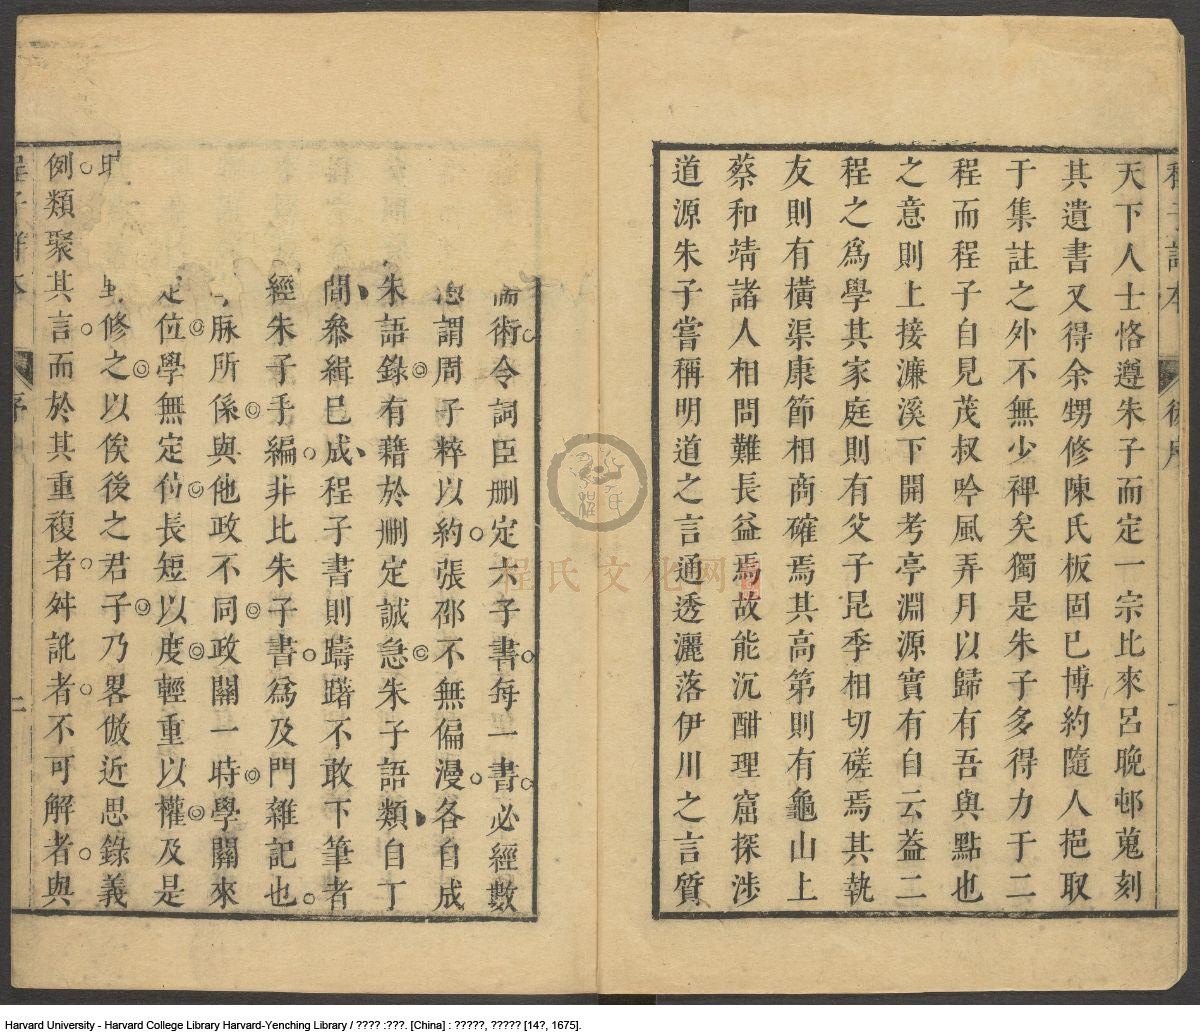 天下人士恪遵朱子而定一宗比來呂晚邨蒐刻
其遺書又得余甥修陳氏板固已博約隨人挹取
于集註之外不無少裨矣獨是朱子多得力于二
程而程子自見茂叔吟風弄月以歸有吾與點也
之意則上接濂溪下開考亭淵源實有自云葢二
程之爲學其家庭則有父子昆季相切磋焉其執
友則有橫渠康節相商確焉其高第則有龜山上
蔡和靖諸人相問難長益焉故能沉酣理窟探涉
道源朱子嘗稱明道之言通透灑落伊川之言質
後序
術令詞臣刪定六子書每一書必經數
謂周子粹以約張邵不無偏漫各自成
朱語錄有藉於刪定誠急朱子語類自丁
間叅緝已成程子書則躊躇不敢下筆者
經朱子手編非比朱子書爲及門雜記也
脉所係與他政不同政關一時學關來
定位學無定位長短以度輕重以權及是
修之以俟後之君子乃畧倣近思錄義
例類聚其言而於其重複者舛訛者不可解者與
序
程氏文化网
Harvard University - Harvard College Library Harvard-Yenching Library / ???? :???. [China] : ?????, ????? [14?, 1675].